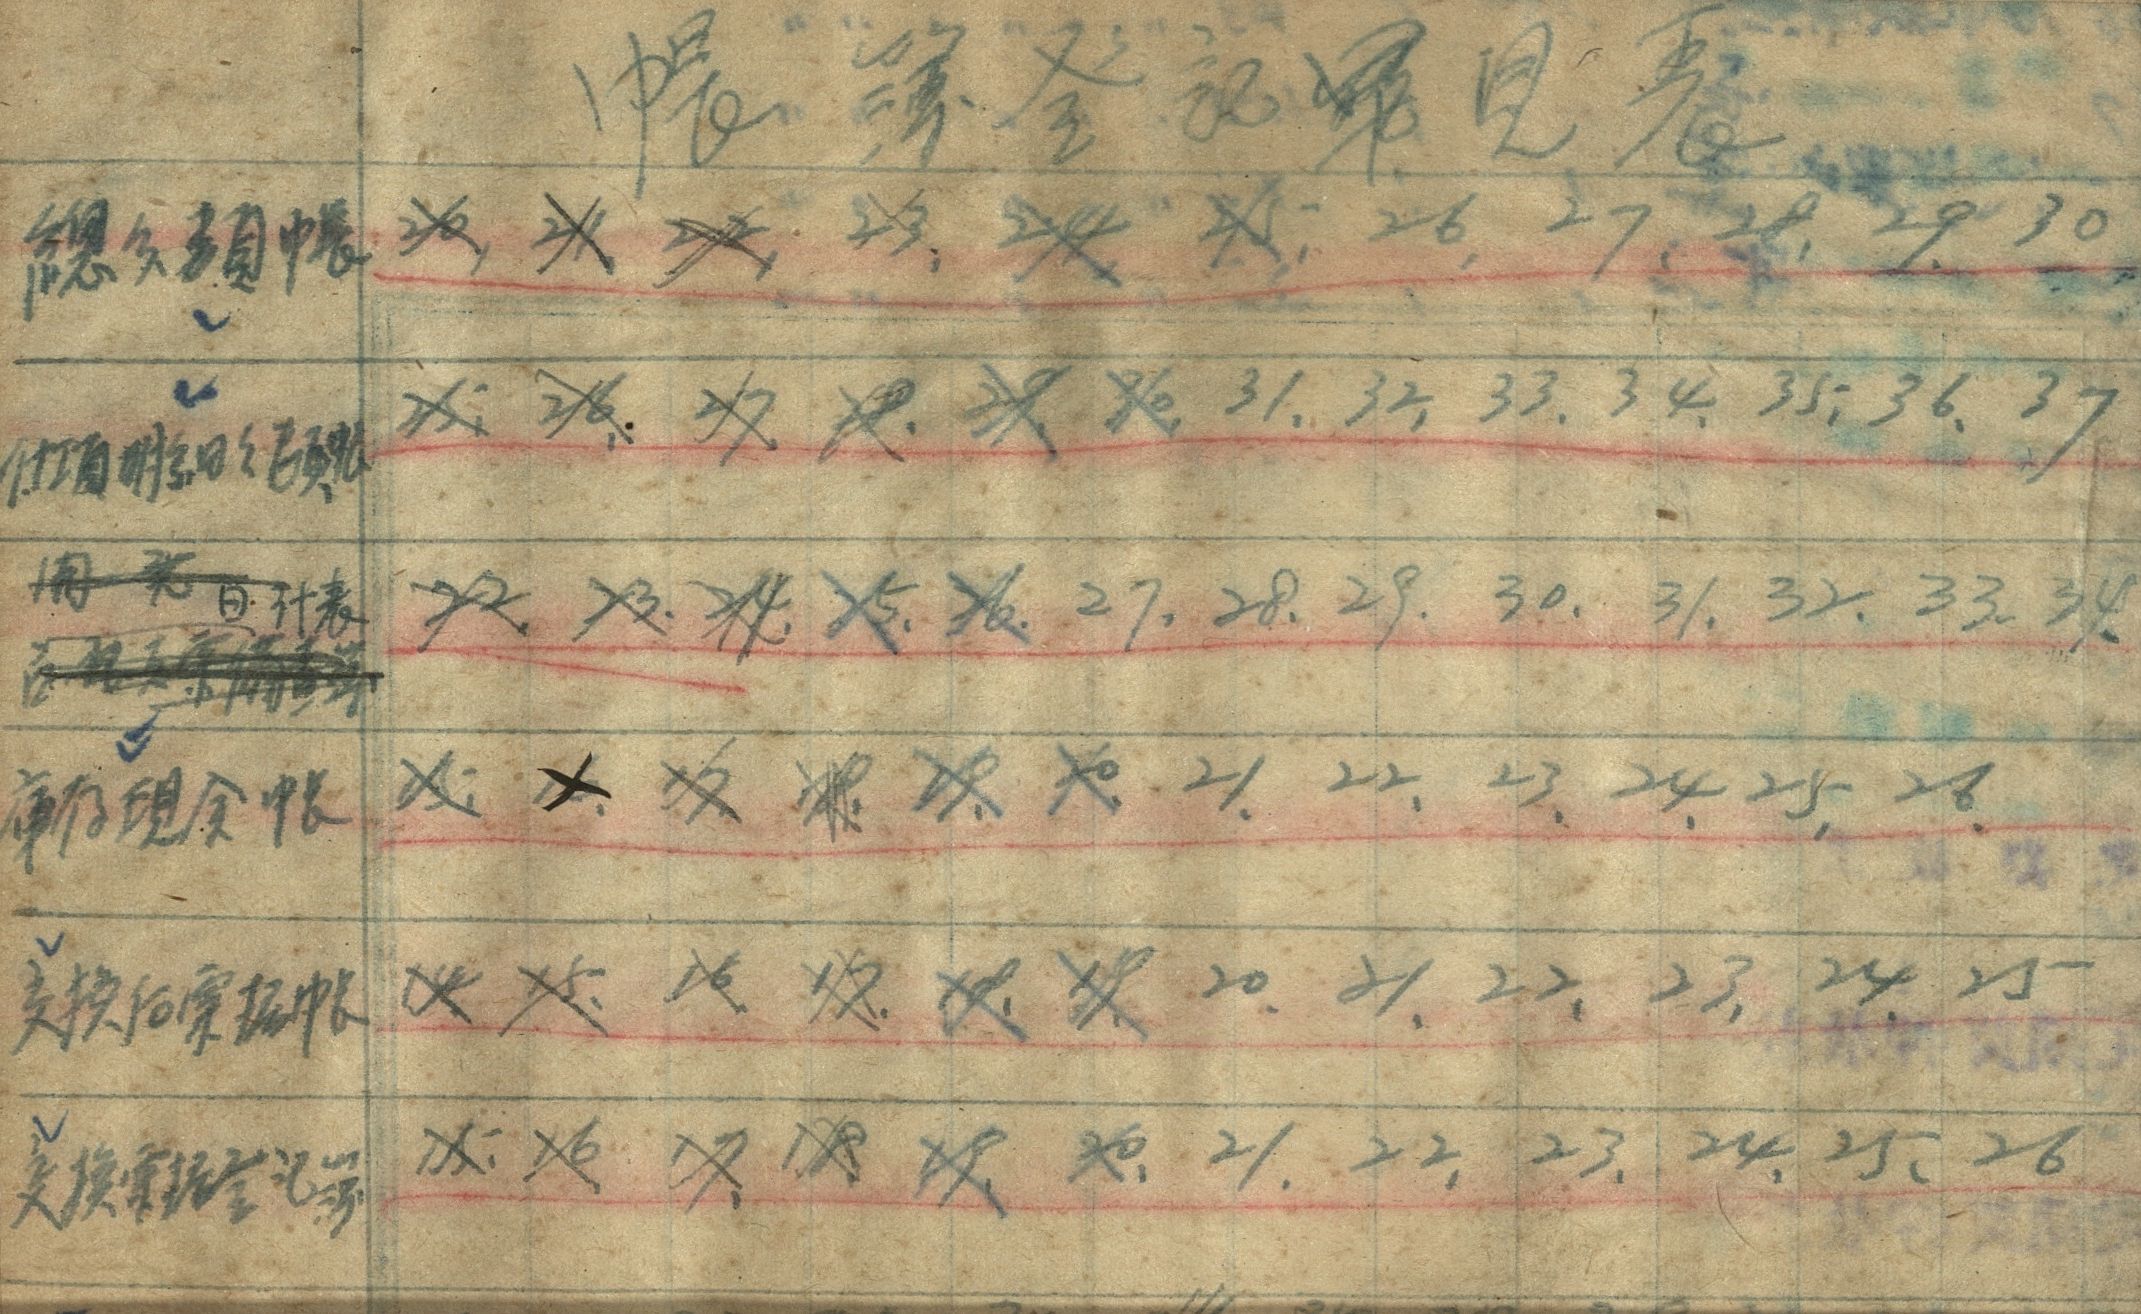 帳簿登記畢見表
總分類帳 20, 21, 22, 23, 24, 25, 26, 27, 28, 29, 30
付項明細分類帳 25, 26, 27, 28, 29, 30, 31, 32, 33, 34, 35, 36, 37
日計表 22, 23, 24, 25, 26, 27, 28, 29, 30, 31, 32, 33, 34
庫存現金帳 15, 16, 17, 18, 19, 20, 21, 22, 23, 24, 25, 26
交換后票据帳 14, 15, 16, 17, 18, 19, 20, 21, 22, 23, 24, 25
交換票据登記簿 15, 16, 17, 18, 19, 20, 21, 22, 23, 24, 25, 26